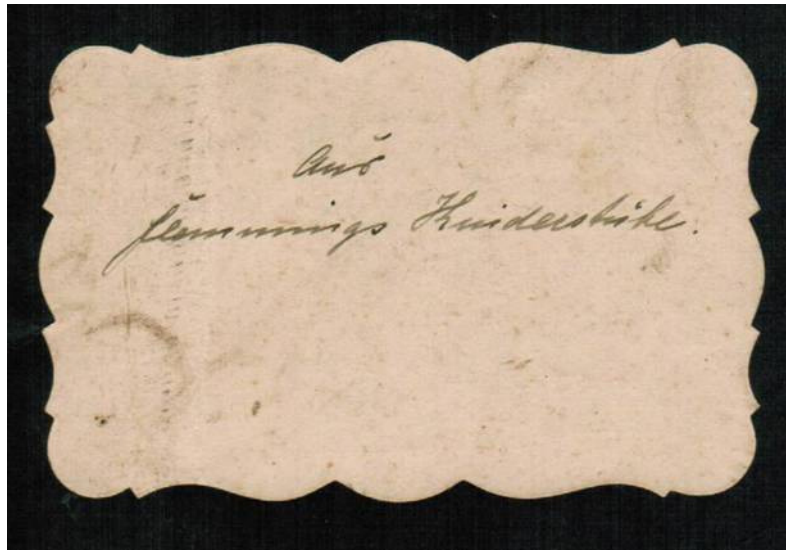 Aus
Flemmings Kinderstube.